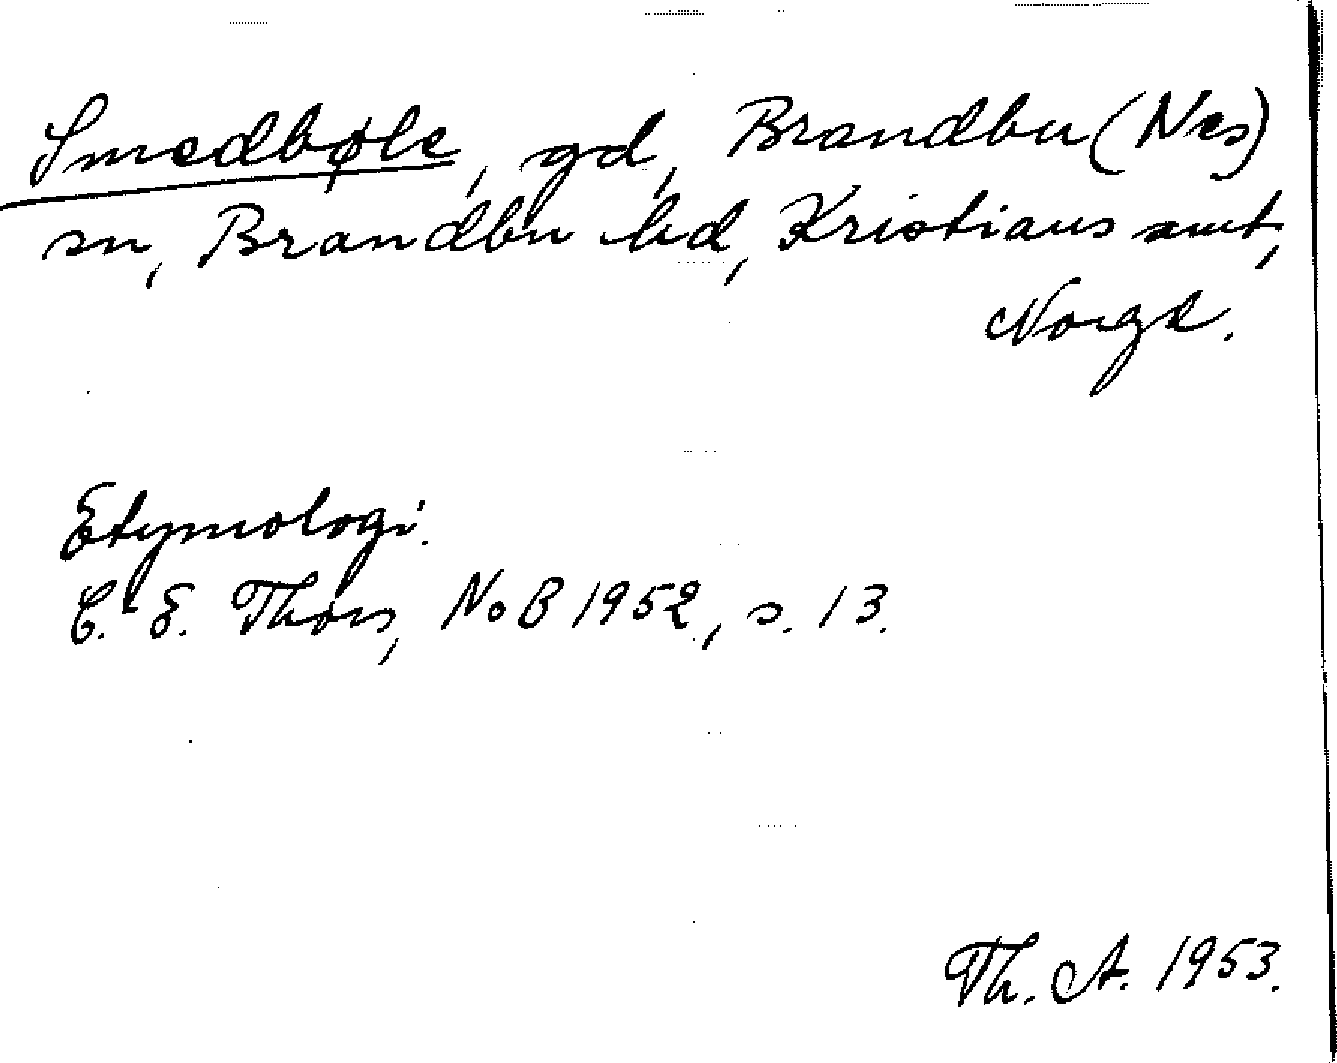 Smedbøle, gd, Brandbu (Nes)
sn, Brandbu hd, Kristians amt,
Norge.
Etymologi.
C. E. Thors, NoB 1952, s. 13.
Th. A. 1953.